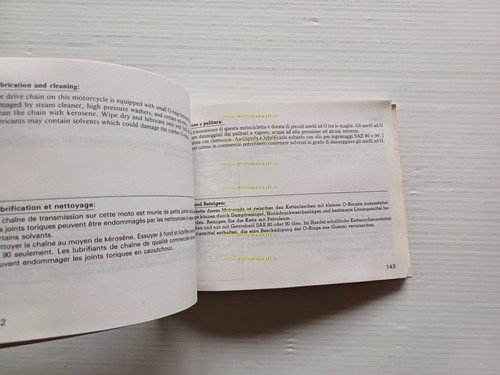 brication and cleaning:
e drive chain on this motorcycle is equipped with small O-rings
maged by steam cleaner, high pressure washers, and certain
ean the chain with kerosene. Wipe dry and lubricate only with
bricants may contain solvents which could damage the rubber
brification et nettoyage:
chaîne de transmission sur cette moto est munie de petits joints
s joints toriques peuvent être endommagés par les nettoyeurs à
rtains solvants.
ttoyer la chaîne au moyen de kérosène. Essuyer à fond et lubrifier
90 seulement. Les lubrifiants de chaîne de qualité commerciale
uvent endommager les joints toriques en caoutchouc.
2
ne e pulitura:
trasmissione di questa motocicletta è dotata di piccoli anelli ad O tra le maglie. Gli anelli ad O
er danneggiati dai pulitori a vapore, acqua ad alta pressione ed alcuni solventi.
ena con cherosene. Asciugarla e lubrificarla soltanto con olio per ingranaggi SAE 80 o 90. I
er catene in commercio potrebbero contenere solventi in grado di danneggiare gli anelli ad O.
und Reinigen:
kette dieses Motorrads ist zwischen den Kettenlaschen mit kleinen O-Ringen ausgestattet.
e können durch Dampfreiniger, Hochdruckwaschanlagen und bestimmte Lösungsmittel be-
rden. Reinigen Sie die Kette mit Petroleum.
chen und nur mit Getriebeöl SAE 80 oder 90 ölen. Im Handel erhältliche Kettenschmiermittel
ngsmittel enthalten, die eine Beschädigung der O-Ringe aus Gummi verursachen.
143